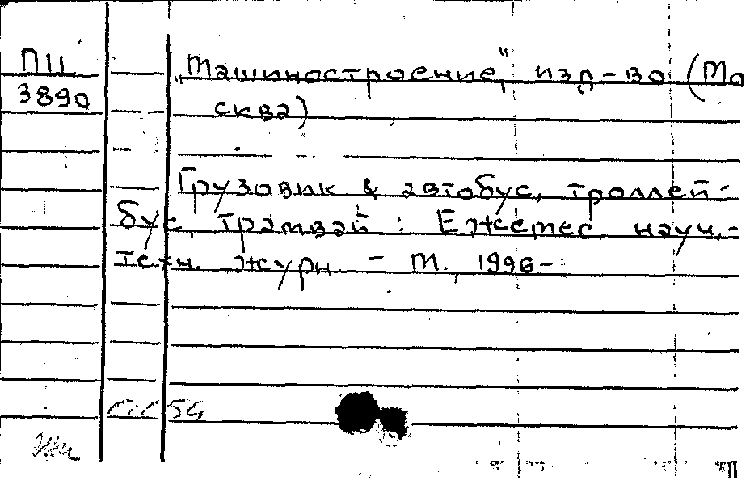 ПЦ
3890
„Машиностроение“, изд-во (Мо
сква)
Грузовик & автобус, троллей-
бус, трамвай : Ежемес науч.-
техн. журн. - М., 1996-